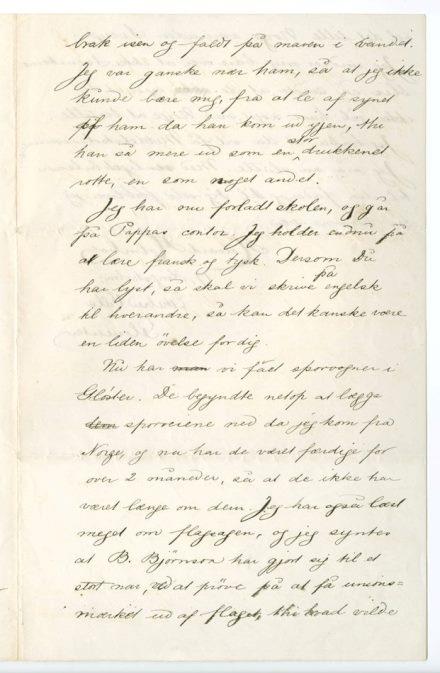 brak isen og faldt på maven i vandet.
Jeg var ganske nær ham, så at jeg ikke
kunde bære mig, fra at le af synet
af ham da han kom ud igjen, thi
han så mere ud som en stor drukkenet
rotte, en som noget andet.
Jeg har nu forladt skolen, og går
på Pappas contor. Jeg holder endnu på
at lære fransk og tysk. Dersom Du
har lyst, så skal vi skrive på engelsk
til hverandre, så kan det kanske være
en liden övelse for dig.
Nu har man vi fået sporvogner i
Glöster. De begyndte netop at lægge
dem sporveiene ned da jeg kom fra
Norge, og nu har de været færdige for
over 2 måneder, så at de ikke har
været længe om dem. Jeg har også læst
meget om flagsagen, og jeg syntes
at B. Björnson har gjort sig til et
stort nar, ved at pröve på at få unions=
mærket ud af flaget, thi hvad vilde